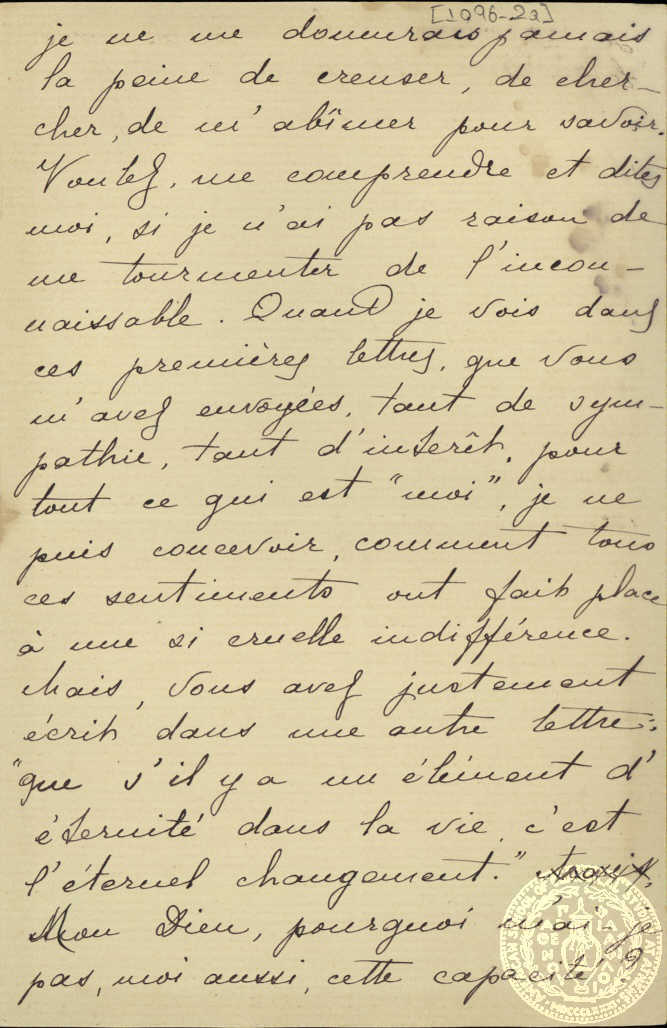 [1096-22]
je ne me donnerais jamais
la peine de creuser, de cher-
cher, de m'abîmer pour savoir.
Voulez, me comprendre et dites
moi, si je n'ai pas raison de
me tourmenter de l'incon-
naissable. Quand je vois dans
ces premières lettres, que vous
m'avez envoyées, tant de sym-
pathie, tant d'intérêt, pour
tout ce qui est "moi", je ne
puis concevoir, comment tous
ces sentiments ont fait place
à une si cruelle indifférence.
Mais, vous avez justement
écrit dans une autre lettre:
"que s'il y a un élément d'
éternité dans la vie, c'est
l'éternel changement."
Mon Dieu, pourquoi n'ai-je
pas, moi aussi, cette capacité?